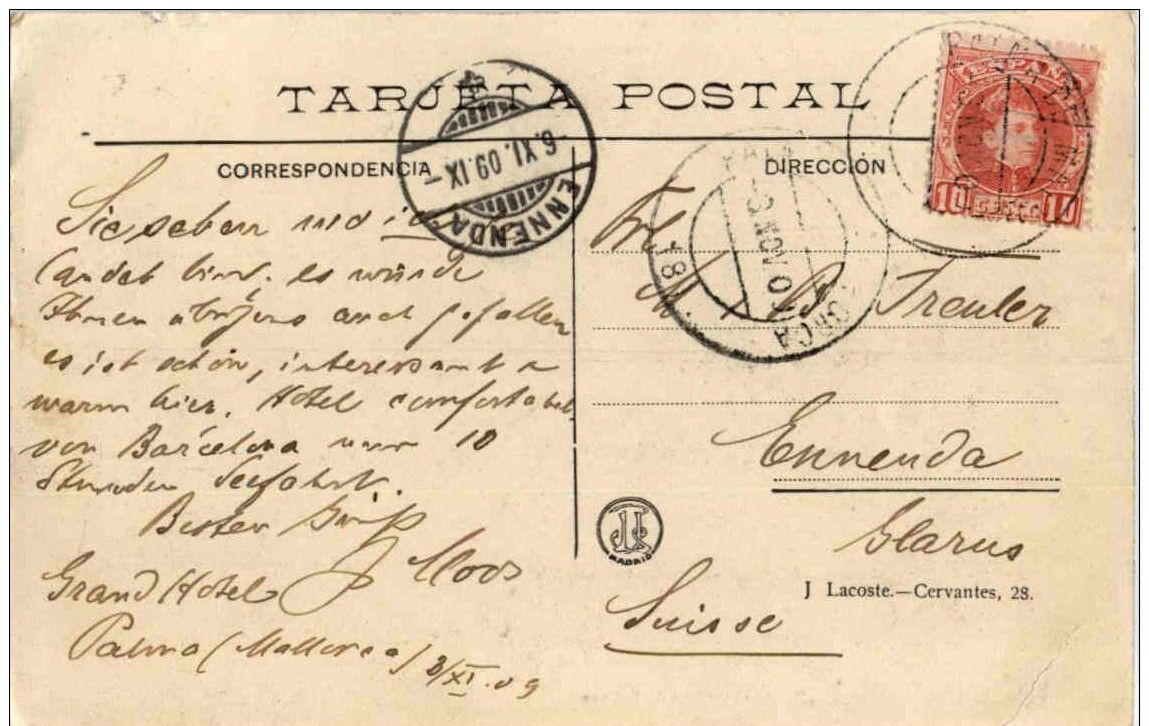 TARJETA POSTAL
CORRESPONDENCIA
DIRECCIÓN
ENNENDA
6.XI.09.IX-
10 10
Sie sehen wo ich
landet bin, es würde
Ihnen übrigens auch gefallen
es ist schön, interessant &
warm hier. Hotel comfortabel
von Barcelona nur 10
Stunden Seefahrt.
Besten Gruß
J Moos
Grand Hotel
Palma (Mallorca) 3/XI.09
Treuler
Ennenda
Glarus
Suisse
MADRID
J Lacoste.—Cervantes, 28.